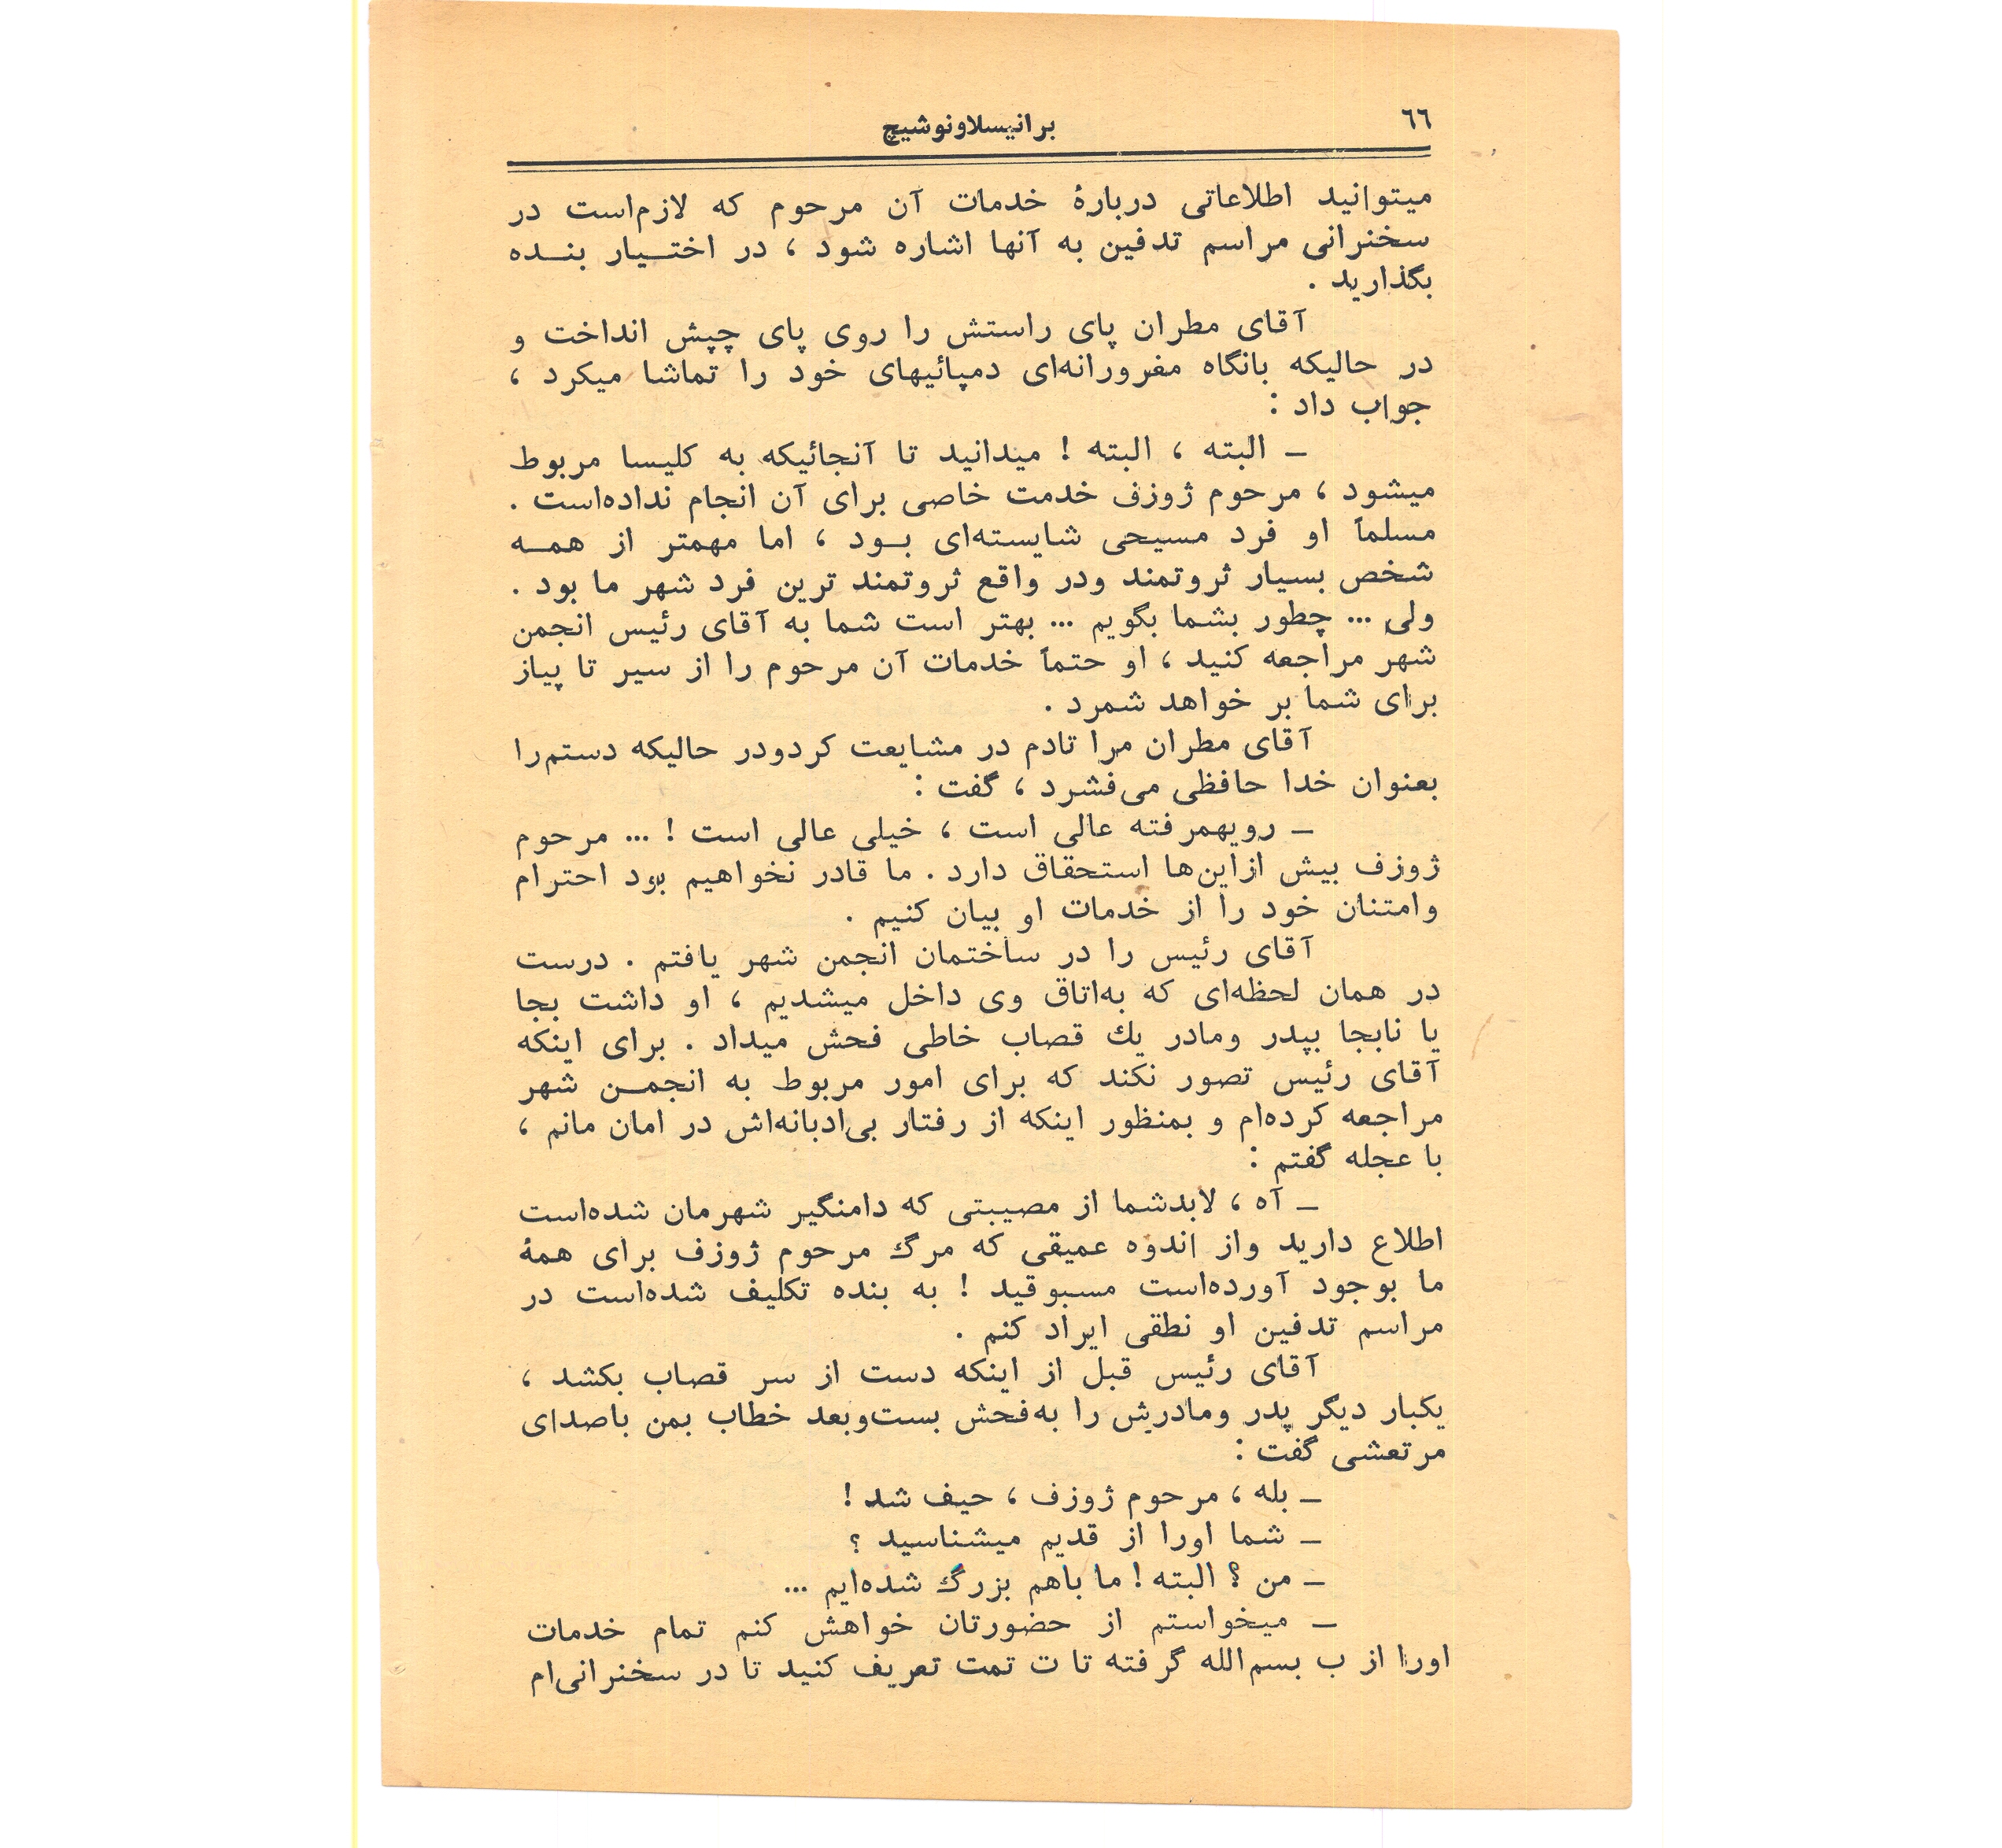 ٦٦
برانیسلاونوشیچ
میتوانید اطلاعاتی دربارهٔ خدمات آن مرحوم که لازم‌است در
سخنرانی مراسم تدفین به آنها اشاره شود ، در اختـیار بنـده
بگذارید .
آقای مطران پای راستش را روی پای چپش انداخت و
در حالیکه بانگاه مغرورانه‌ای دمپائیهای خود را تماشا میکرد ،
جواب داد :
ـ البته ، البته ! میدانید تا آنجائیکه به کلیسا مربوط
میشود ، مرحوم ژوزف خدمت خاصی برای آن انجام نداده‌است .
مسلماً او فرد مسیحی شایسته‌ای بـود ، اما مهمتر از همـه
شخص بسیار ثروتمند ودر واقع ثروتمند ترین فرد شهر ما بود .
ولی ... چطور بشما بگویم ... بهتر است شما به آقای رئیس انجمن
شهر مراجعه کنید ، او حتماً خدمات آن مرحوم را از سیر تا پیاز
برای شما بر خواهد شمرد .
آقای مطران مرا تادم در مشایعت کردودر حالیکه دستم‌را
بعنوان خدا حافظی می‌فشرد ، گفت :
ـ رویهمرفته عالی است ، خیلی عالی است ! ... مرحوم
ژوزف بیش ازاین‌ها استحقاق دارد . ما قادر نخواهیم بود احترام
وامتنان خود را از خدمات او بیان کنیم .
آقای رئیس را در ساختمان انجمن شهر یافتم . درست
در همان لحظه‌ای که به‌اتاق وی داخل میشدیم ، او داشت بجا
یا نابجا بپدر ومادر یك قصاب خاطی فحش میداد . برای اینکه
آقای رئیس تصور نکند که برای امور مربوط به انجمـن شهر
مراجعه کرده‌ام و بمنظور اینکه از رفتار بی‌ادبانه‌اش در امان مانم ،
با عجله گفتم :
ـ آه ، لابدشما از مصیبتی که دامنگیر شهرمان شده‌است
اطلاع دارید واز اندوه عمیقی که مرگ مرحوم ژوزف برای همهٔ
ما بوجود آورده‌است مسبوقید ! به بنده تکلیف شده‌است در
مراسم تدفین او نطقی ایراد کنم .
آقای رئیس قبل از اینکه دست از سر قصاب بکشد ،
یکبار دیگر پدر ومادرش را به‌فحش بست‌وبعد خطاب بمن باصدای
مرتعشی گفت :
ـ بله ، مرحوم ژوزف ، حیف شد !
ـ شما اورا از قدیم میشناسید ؟
ـ من ؟ البته ! ما باهم بزرگ شده‌ایم ...
ـ میخواستم از حضورتان خواهش کنم تمام خدمات
اورا از ب بسم‌الله گرفته تا ت تمت تعریف کنید تا در سخنرانی‌ام